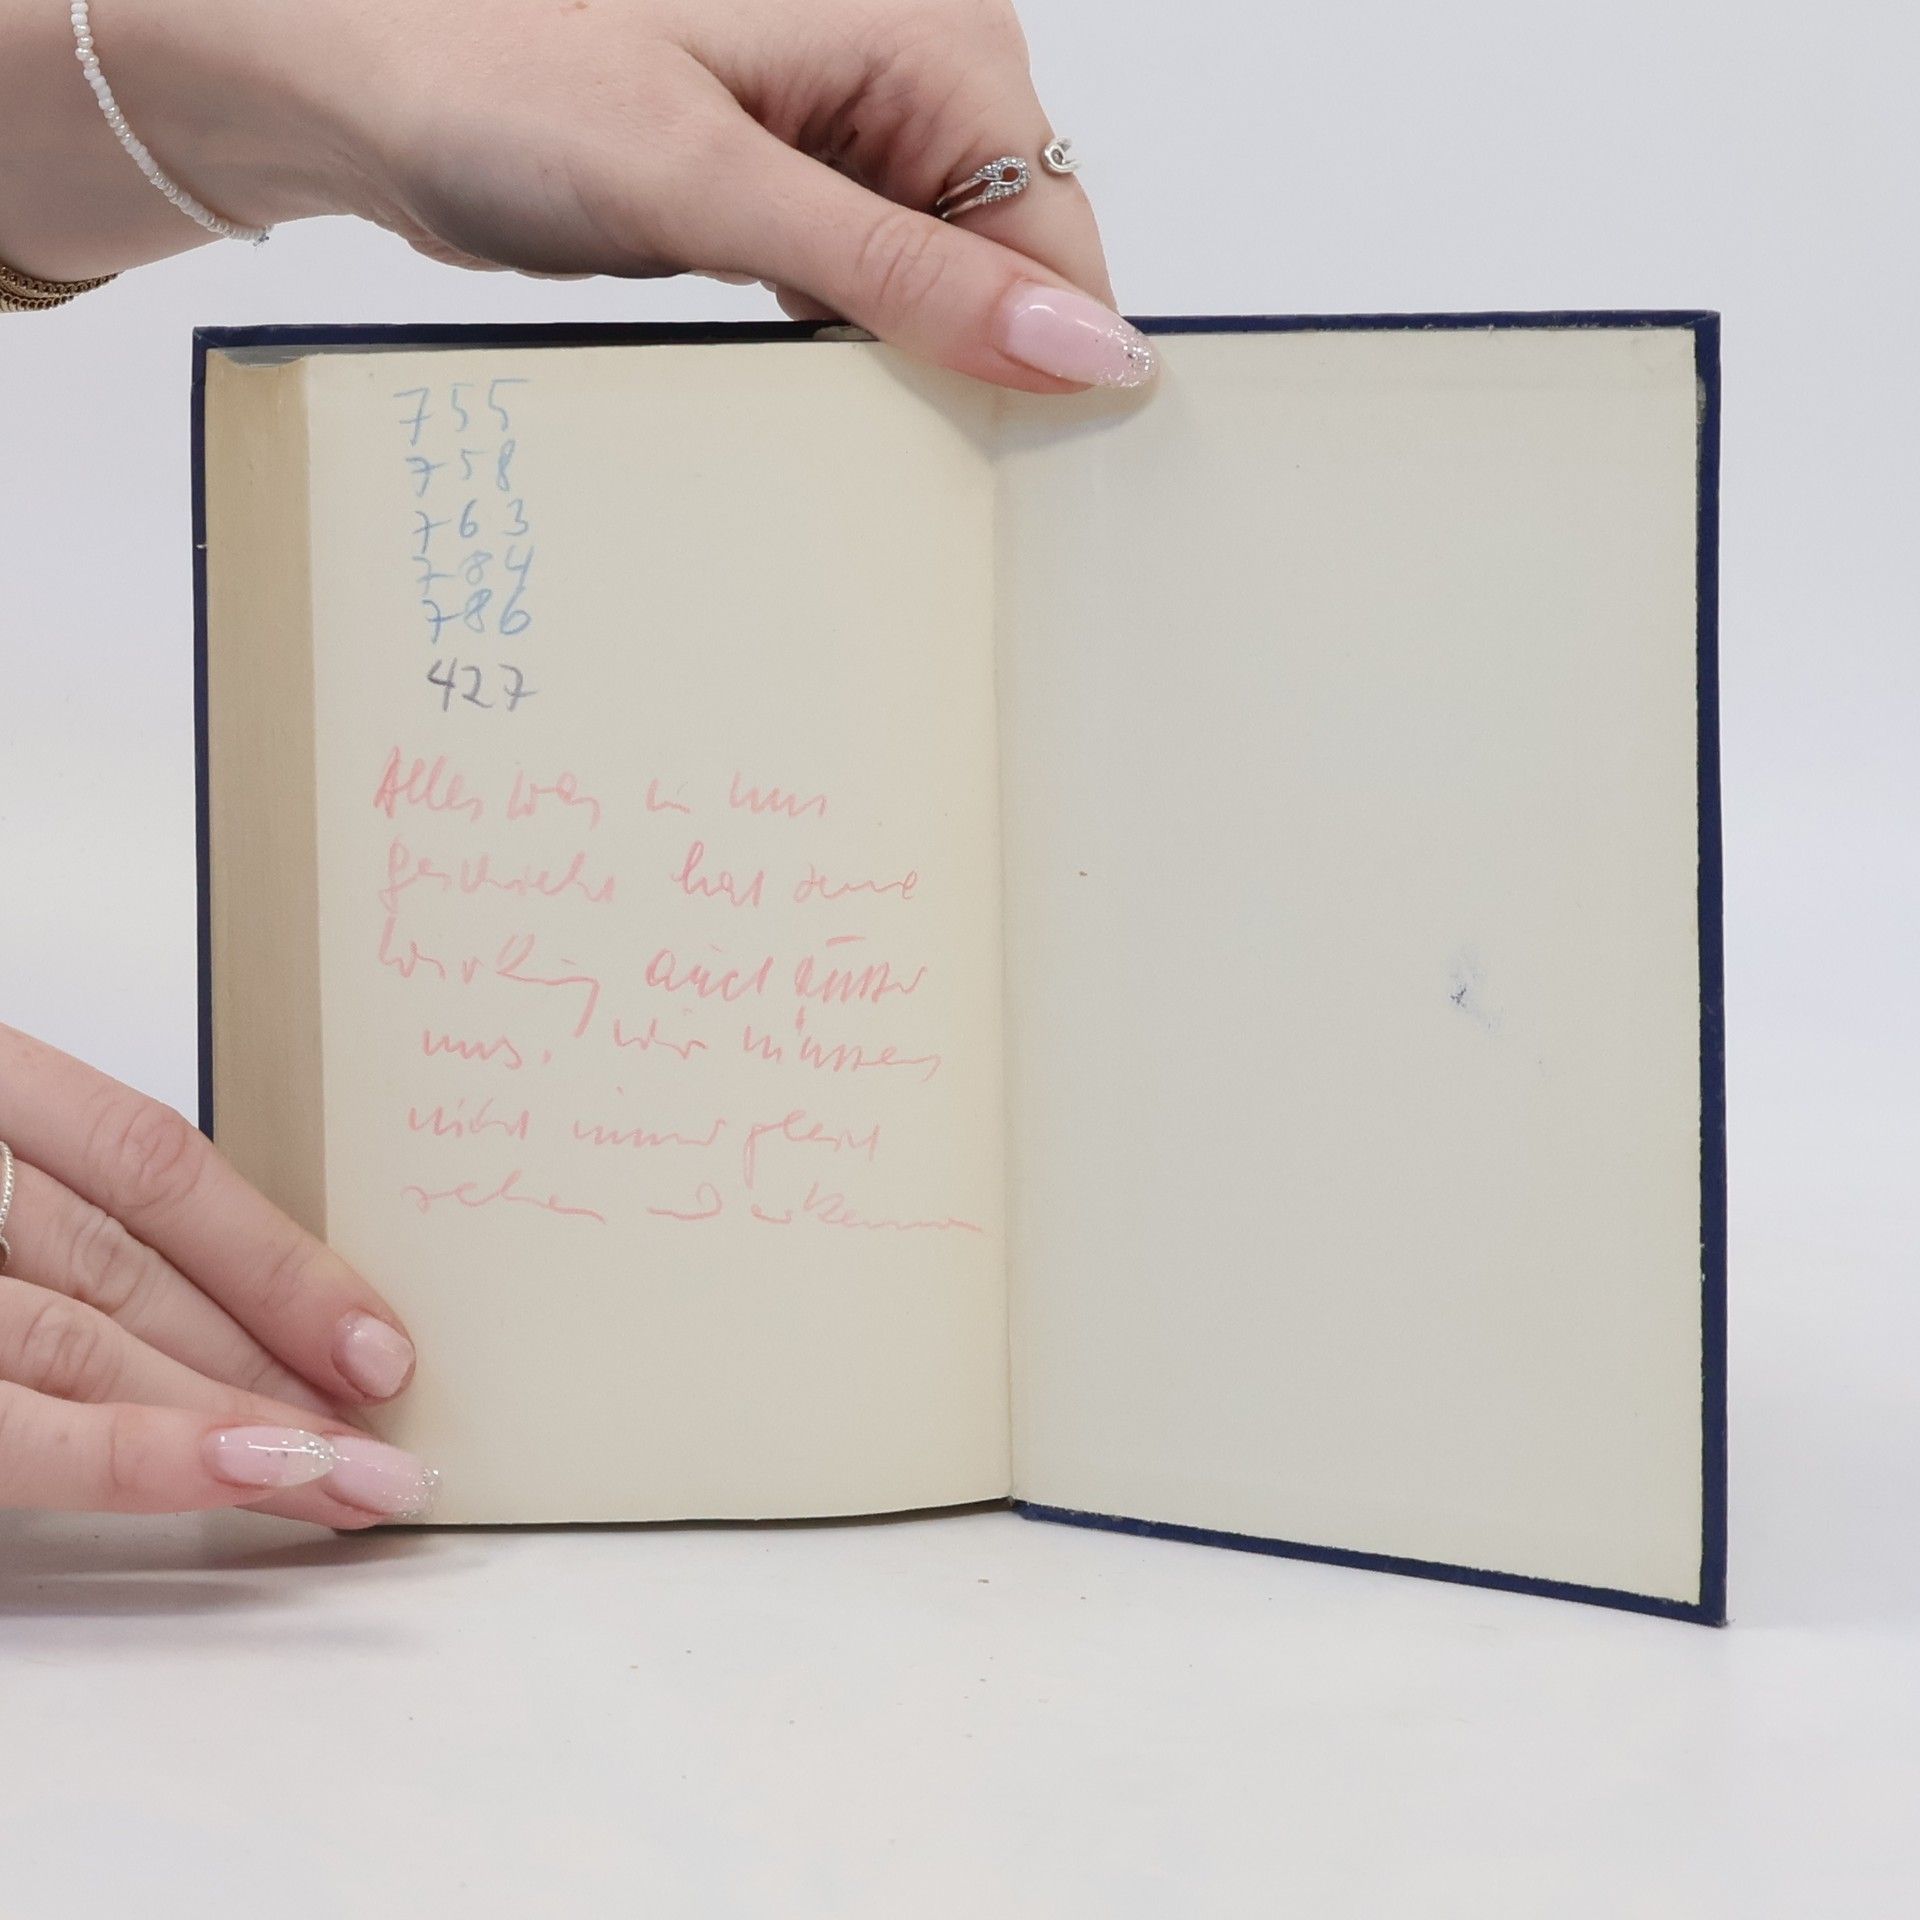 755
758
763
784
786
427
Alles was in uns
geschieht hat seine
Wirkung auch außer
uns. Wir müssen
nicht immer gleich
sehen und erkennen